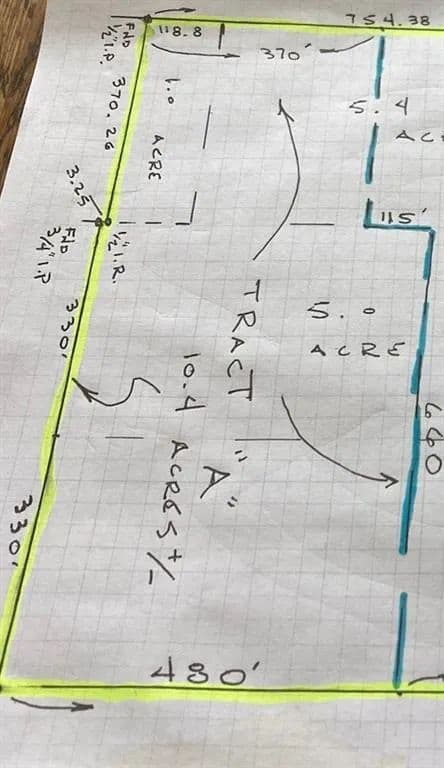 754.38
118.8
370'
FND
1/2" I.P.
370.26
1.0
ACRE
5.4
AC
3.25
115'
FND
3/4" I.P
1/2" I.R.
330'
TRACT
"A"
10.4
ACRES +/-
5.0
ACRE
660
330'
480'